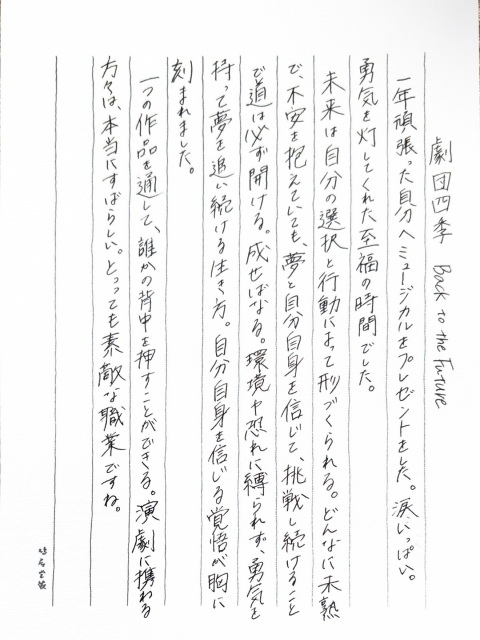 劇団四季 Back to the Future
一年頑張った自分へミュージカルをプレゼントをした。涙いっぱい。
勇気を灯してくれた至福の時間でした。
未来は自分の選択と行動によって形づくられる。どんなに未熟
で、不安を抱えていても、夢と自分自身を信じて、挑戦し続けること
で道は必ず開ける。成せばなる。環境や恐れに縛られず、勇気を
持って夢を追い続ける生き方。自分自身を信じる覚悟が胸に
刻まれました。
一つの作品を通して、誰かの背中を押すことができる。演劇に携わる
方々は、本当にすばらしい。とっても素敵な職業ですね。